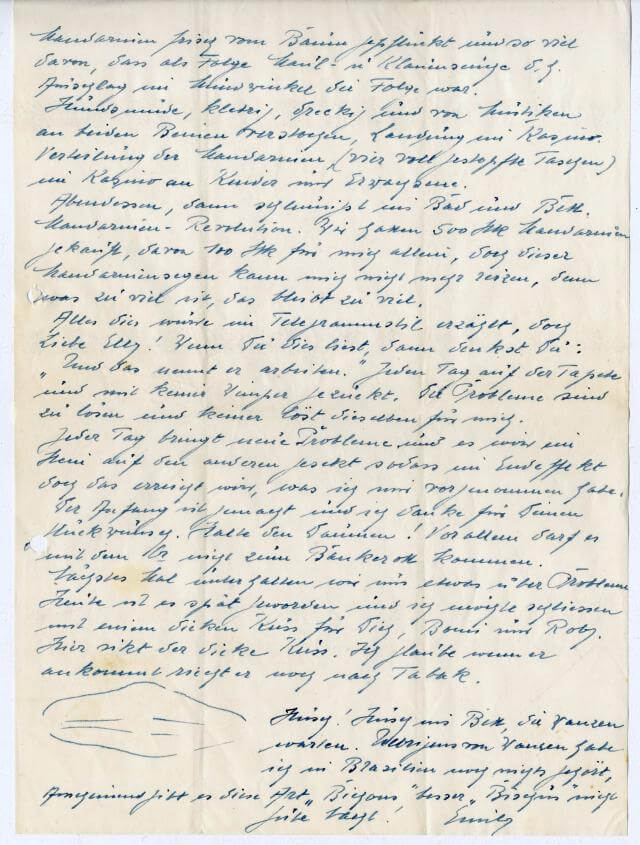 Mandarinen frisch vom Baum gepflückt und so viel
davon, dass als Folge Maul- u Klauenseuge d.h.
Ausschlag im Mundwinkel die Folge war.
Hundsmüde, klebrig, dreckig und von Mustiken
an beiden Beinen verstochen, Landung im Kasino.
Verteilung der Mandarinen (vier voll gestopfte Taschen)
im Kasino an Kinder und Erwachsene.
Abendessen, dann schnurrst ins Bad und Bett.
Mandarinen-Revolution. Wir haben 500 Stk Mandarinen
gekauft, davon 100 Stk für mich allein, doch dieser
Mandarinensegen kann mich nicht mehr reizen, denn
was zu viel ist, das bleibt zu viel.
Alles dies wurde im Telegrammstil erzählt, doch
Liebe Elly! Wenn Du dies liest, dann denkst Du:
„Und das nennt er arbeiten." Jeden Tag auf der Tapete
und mit keiner Wimper gezuckt. Die Probleme sind
zu lösen und keiner löst dieselben für mich.
Jeder Tag bringt neue Probleme und es wird ein
Stein auf den anderen gesetzt sodass im Endeffekt
doch das erreicht wird, was ich mir vorgenommen habe.
Der Anfang ist gemacht und ich danke für Deinen
Glückwunsch. Halte den Daumen! Vor allem darf es
mit dem nicht zum Bankerott kommen.
Nächstes Mal unterhalten wir uns etwas über Probleme
Heute ist es spät geworden und ich möchte schliessen
mit einem dicken Kuss für Dich, Bomi und Roby.
Hier sitzt der dicke Kuss. Ich glaube wenn er
ankommt riecht er noch nach Tabak.
Husch! Husch ins Bett, die Wanzen
warten. Übrigens von Wanzen habe
ich in Brasilien noch nichts gehört,
Anscheinend gibt es diese Art besser nicht
Gute Nacht! Emily